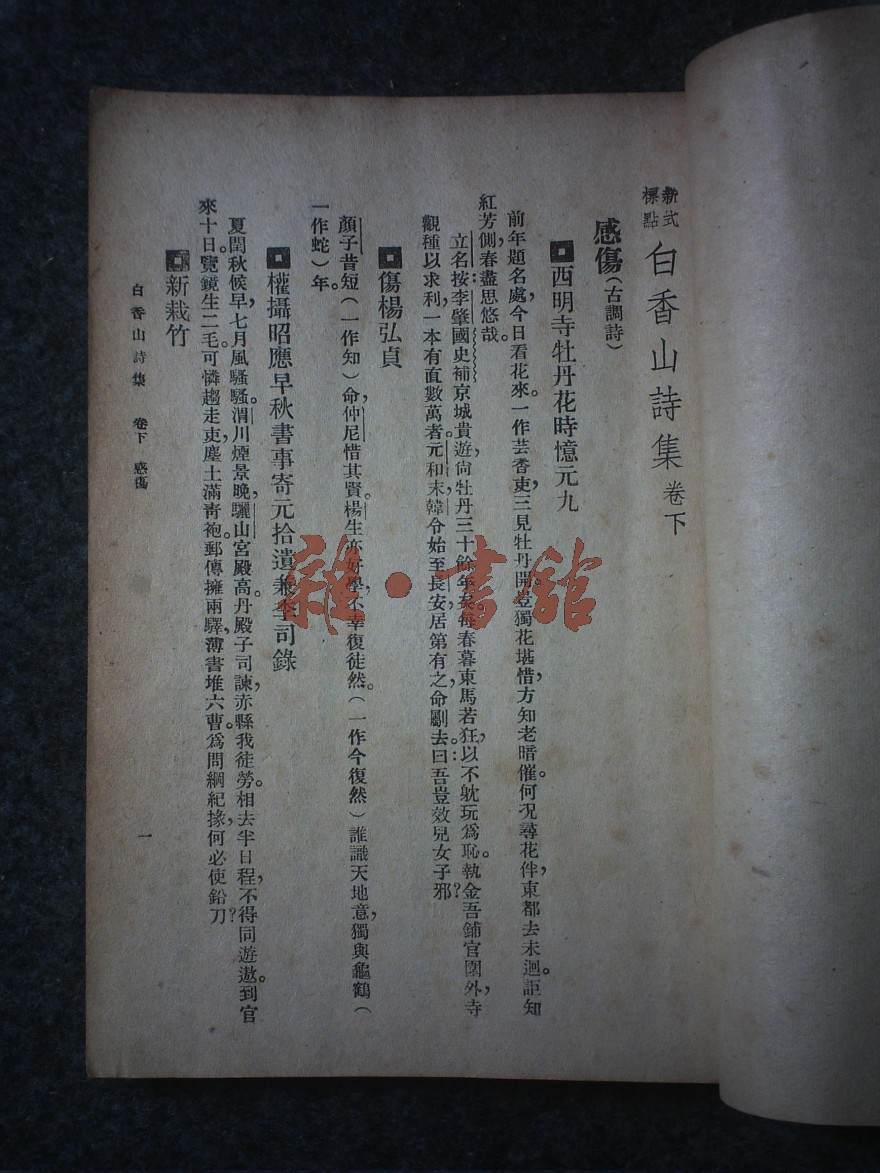 新式
標點
白香山詩集 卷下
感傷（古調詩）
西明寺牡丹花時憶元九
前年題名處，今日看花來。一作芸香吏，三見牡丹開。豈獨花堪惜，方知老暗催。何況尋花伴，東都去未迴。詎知
紅芳側，春盡思悠哉。
立名按李肇國史補：京城貴遊，尙牡丹三十餘年矣。每春暮東馬若狂，以不躭玩爲恥。執金吾鋪官圍外寺
觀種以求利，一本有直數萬者。元和末韓令始至長安，居第有之，命劚去。曰：吾豈效兒女子邪？
傷楊弘貞
顏子昔短（一作知）命，仲尼惜其賢。楊生亦好學，不幸復徒然。（一作今復然）誰識天地意，獨與龜鶴（
一作蛇）年。
權攝昭應早秋書事寄元拾遺兼李司錄
夏閏秋候早，七月風騷騷。渭川煙景晚，驪山宮殿高。丹殿子司諫，赤縣我徒勞。相去半日程，不得同遊遨。到官
來十日，覽鏡生二毛。可憐趨走吏，塵土滿靑袍。郵傳擁兩驛，薄書堆六曹。爲問綱紀掾，何必使鉛刀？
新栽竹
白香山詩集 卷下 感傷
一
雜·書館